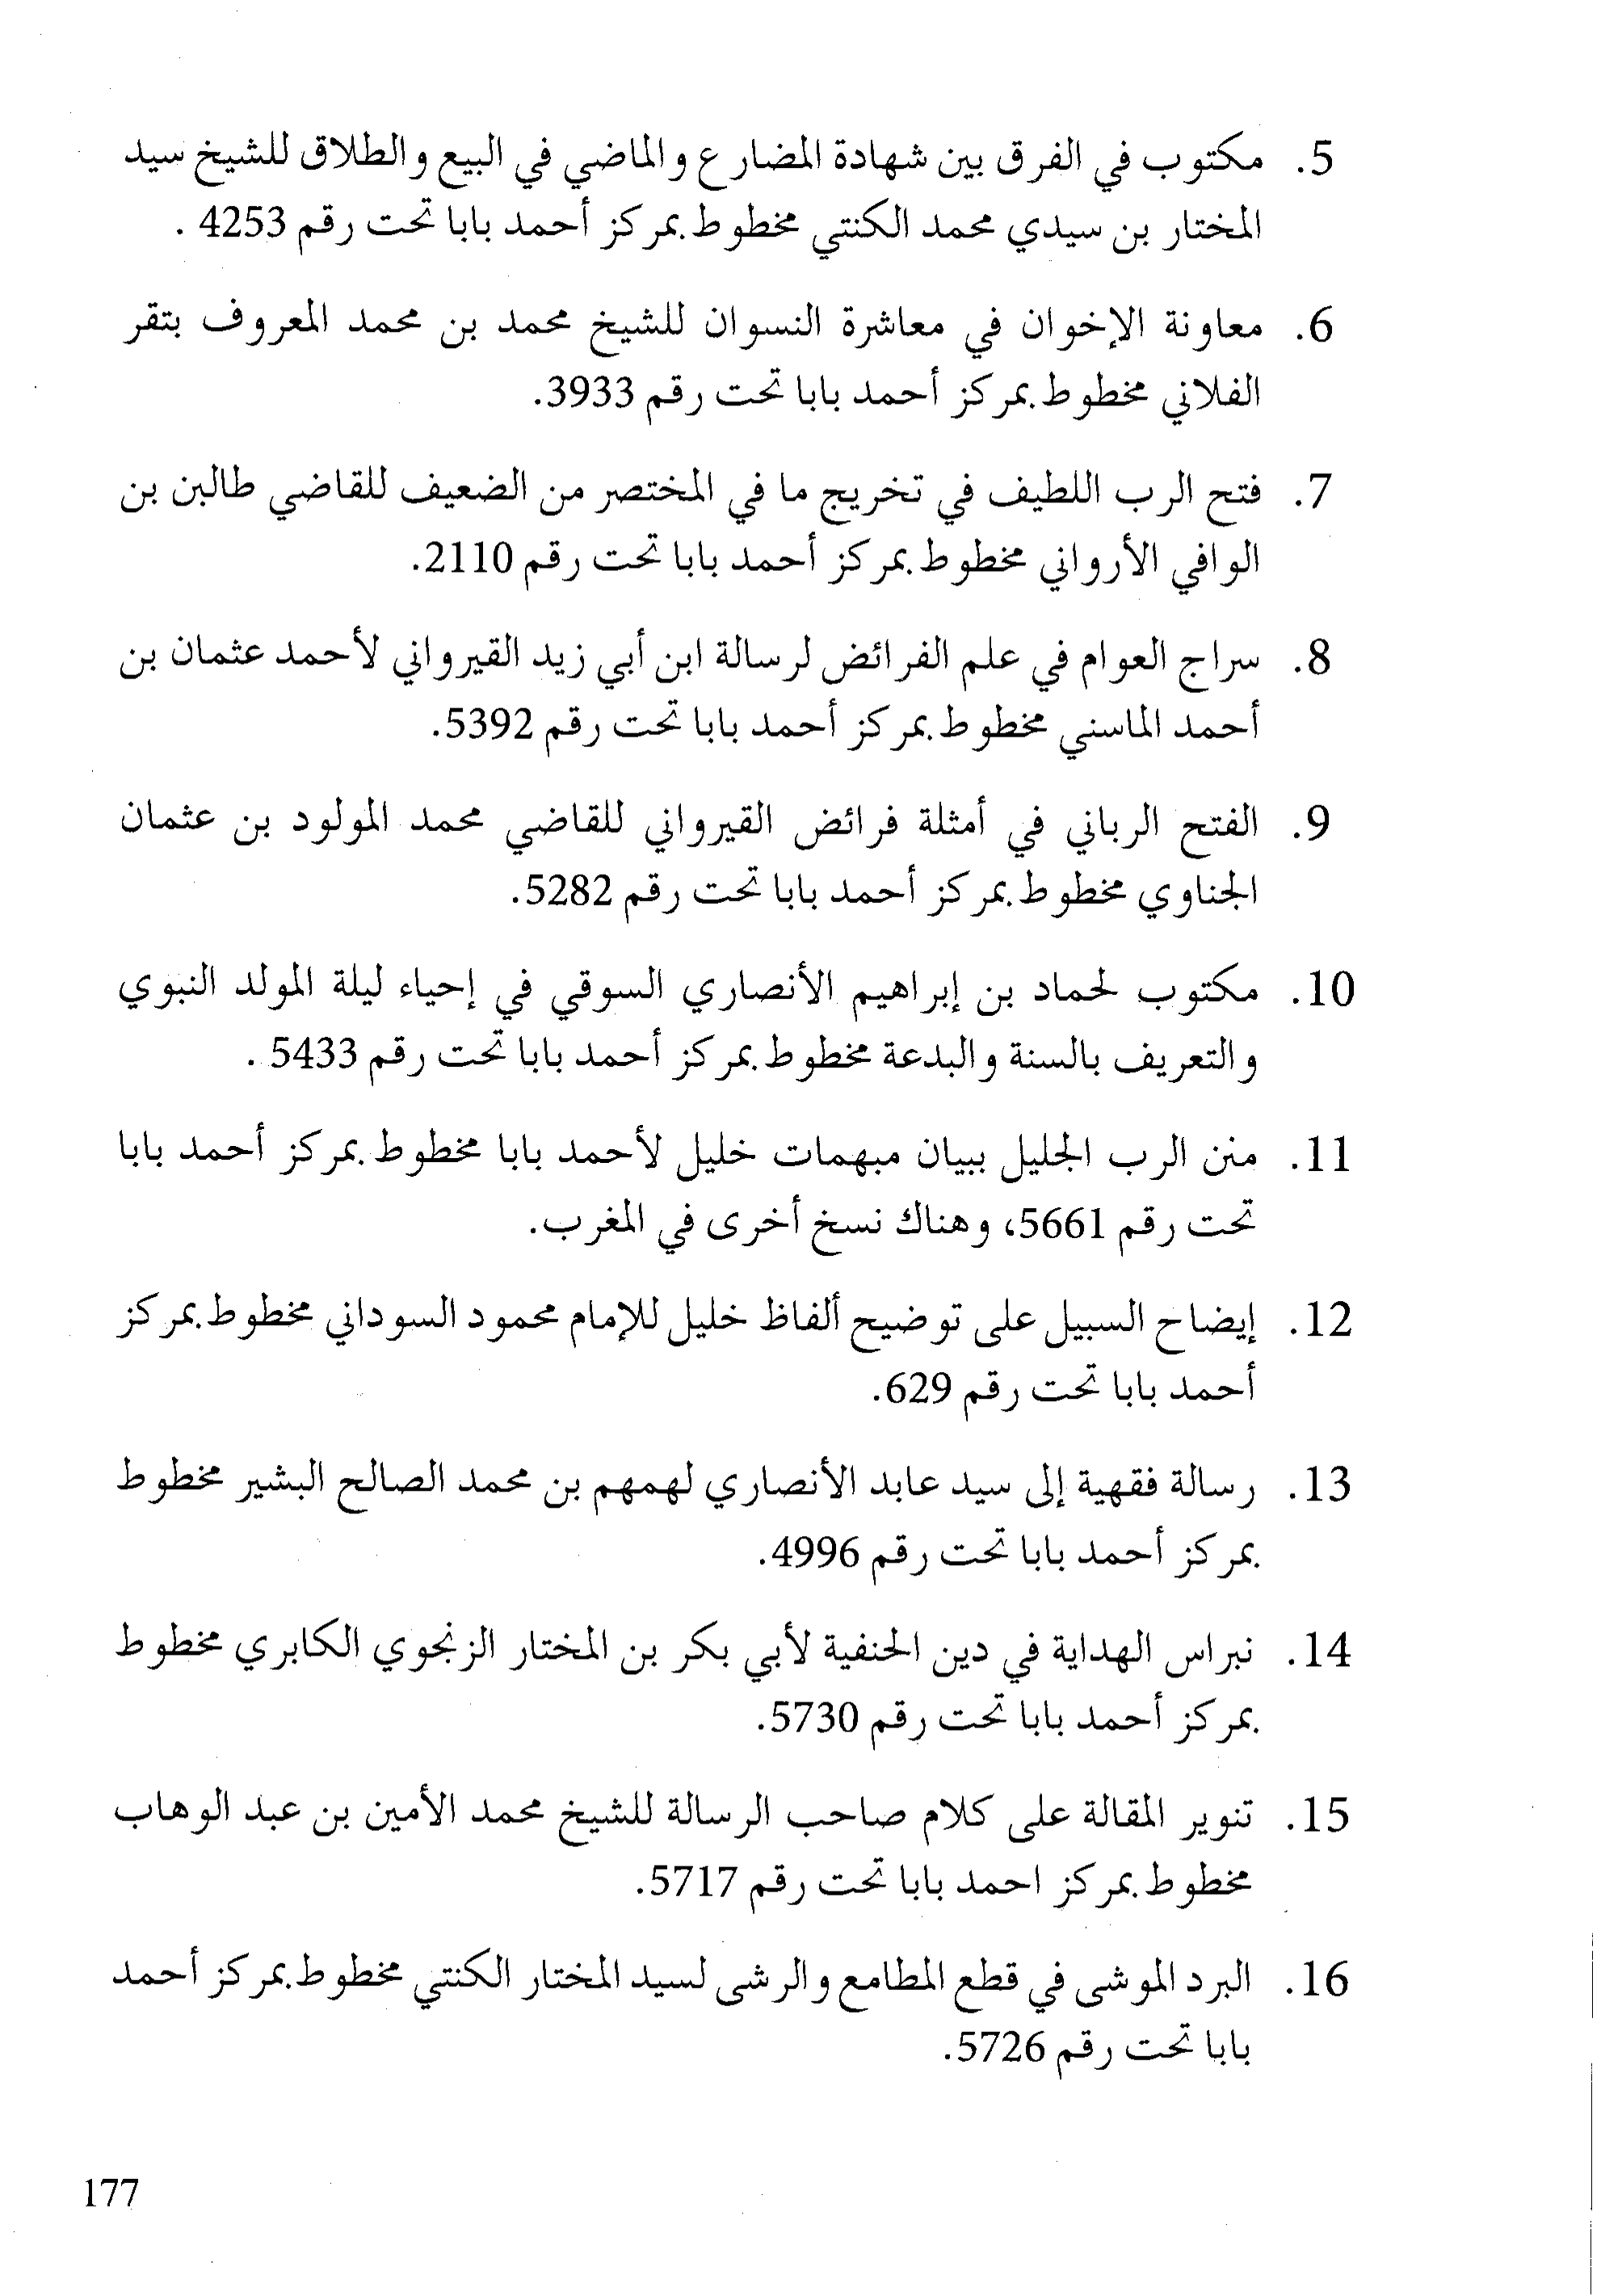 5. مكتوب في الفرق بين شهادة المضارع والماضي في البيع والطلاق للشيخ سيد
المختار بن سيدي محمد الكنتي مخطوط بمركز أحمد بابا تحت رقم 4253 .
6. معاونة الإخوان في معاشرة النسوان للشيخ محمد بن محمد المعروف بتقر
الفلاني مخطوط بمركز أحمد بابا تحت رقم 3933.
7. فتح الرب اللطيف في تخريج ما في المختصر من الضعيف للقاضي طالبن بن
الوافي الأرواني مخطوط بمركز أحمد بابا تحت رقم 2110.
8. سراج العوام في علم الفرائض لرسالة ابن أبي زيد القيرواني لأحمد عثمان بن
أحمد الماسني مخطوط بمركز أحمد بابا تحت رقم 5392.
9. الفتح الرباني في أمثلة فرائض القيرواني للقاضي محمد المولود بن عثمان
الجناوي مخطوط بمركز أحمد بابا تحت رقم 5282.
10. مكتوب لحماد بن إبراهيم الأنصاري السوقي في إحياء ليلة المولد النبوي
والتعريف بالسنة والبدعة مخطوط بمركز أحمد بابا تحت رقم 5433 .
11. منن الرب الجليل ببيان مبهمات خليل لأحمد بابا مخطوط بمركز أحمد بابا
تحت رقم 5661، وهناك نسخ أخرى في المغرب.
12. إيضاح السبيل على توضيح ألفاظ خليل للإمام محمود السوداني مخطوط بمركز
أحمد بابا تحت رقم 629.
13. رسالة فقهية إلى سيد عابد الأنصاري لهمهم بن محمد الصالح البشير مخطوط
بمركز أحمد بابا تحت رقم 4996.
14. نبراس الهداية في دين الحنفية لأبي بكر بن المختار الزنجوي الكابري مخطوط
بمركز أحمد بابا تحت رقم 5730.
15. تنوير المقالة على كلام صاحب الرسالة للشيخ محمد الأمين بن عبد الوهاب
مخطوط بمركز احمد بابا تحت رقم 5717.
16. البرد الموشى في قطع المطامع والرشى لسيد المختار الكنتي مخطوط بمركز أحمد
بابا تحت رقم 5726.
177